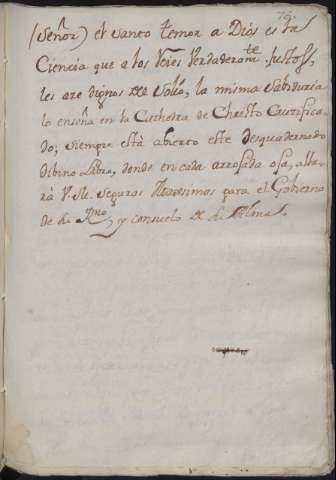 76.
(Señor) el Santo temor a Dios es la
Ciencia que a los Reies Verdaderamte. Justos,
les aze dignos del Solio, la misma Sabiduria
lo enseña en la Cathedra de Christo Crucifica-
do; Siempre està abierto este desquadernado
Dibino Libro, donde en cada arrosada oja, alla-
rà V. M. Seguros para el Gobierno
de su Rno, y consuelo de su Alma.